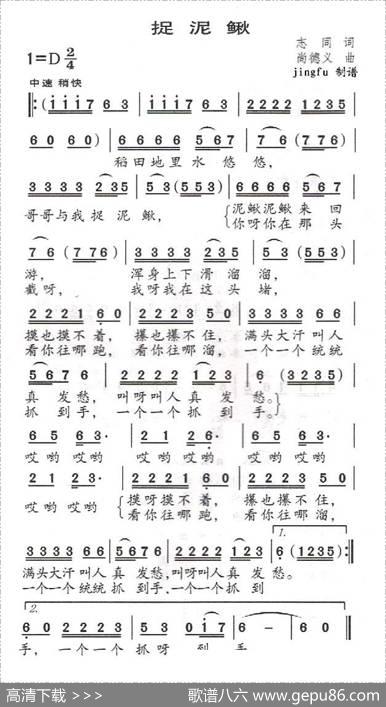 捉泥鳅
志同 词
1=D 2/4
尚德义 曲
中速 稍快
jingfu 制谱
‖:( i i i 7 6 3 | i i i 7 6 3 | 2 2 2 2 1 2 3 5 |
6 0 6 0 ) | 6 6 6 6 6 5 6 7 | 7 6 ( 7 7 6 ) |
稻田地里水 悠 悠,
3 3 3 3 2 3 5 | 5 3 ( 5 5 3 ) | 6 6 6 6 5 6 7 |
哥哥与我 捉 泥 鳅, 泥鳅泥鳅 来 回
你呀你在 那 头
7 6 ( 7 7 6 ) | 3 3 3 3 2 3 5 | 5 3 ( 5 5 3 ) |
游, 浑身上下 滑 溜 溜,
截呀, 我呀我在 这 头 堵,
2 2 2 1 6 0 | 2 2 2 3 5 0 | 3 3 3 3 6 6 |
摸也摸不着, 攥也攥不住, 满头大汗叫人
看你往哪跑, 看你往哪溜, 一个一个统统
5 6 7 6 | 2 2 2 2 | 1 2 3 | 6 ( 3 2 3 5 ) |
真 发 愁, 叫呀叫人 真 发 愁。
抓 到 手, 一个一个 抓 到 手。
6 5 6 3· | 2 1 2 6· | 6 5 6 3· |
哎 哟 哎 哟 哎 哟 哎 哟 哎 哟 哎 哟
2 1 2 3· | 2 2 2 1 6 0 | 2 2 2 3 5 0 |
哎 哟 哎 哟 摸呀摸不着, 攥也攥不住,
看你往哪跑, 看你往哪溜,
1.
3 3 3 3 6 6 | 5 6 7 6 | 2 2 2 2 1 2 3 | 6 ( 1 2 3 5 ) :‖
满头大汗叫人 真 发愁,叫呀叫人真 发 愁。
一个一个统统 抓 到手,一个一个抓 到手.
2.
6 0 2 2 2 2 | 5 3 0 i 7 | 6 — | 6 0 ‖
手, 一个一个 抓呀 到 手
高清下载 >>>
歌谱八六 www.gepu86.com